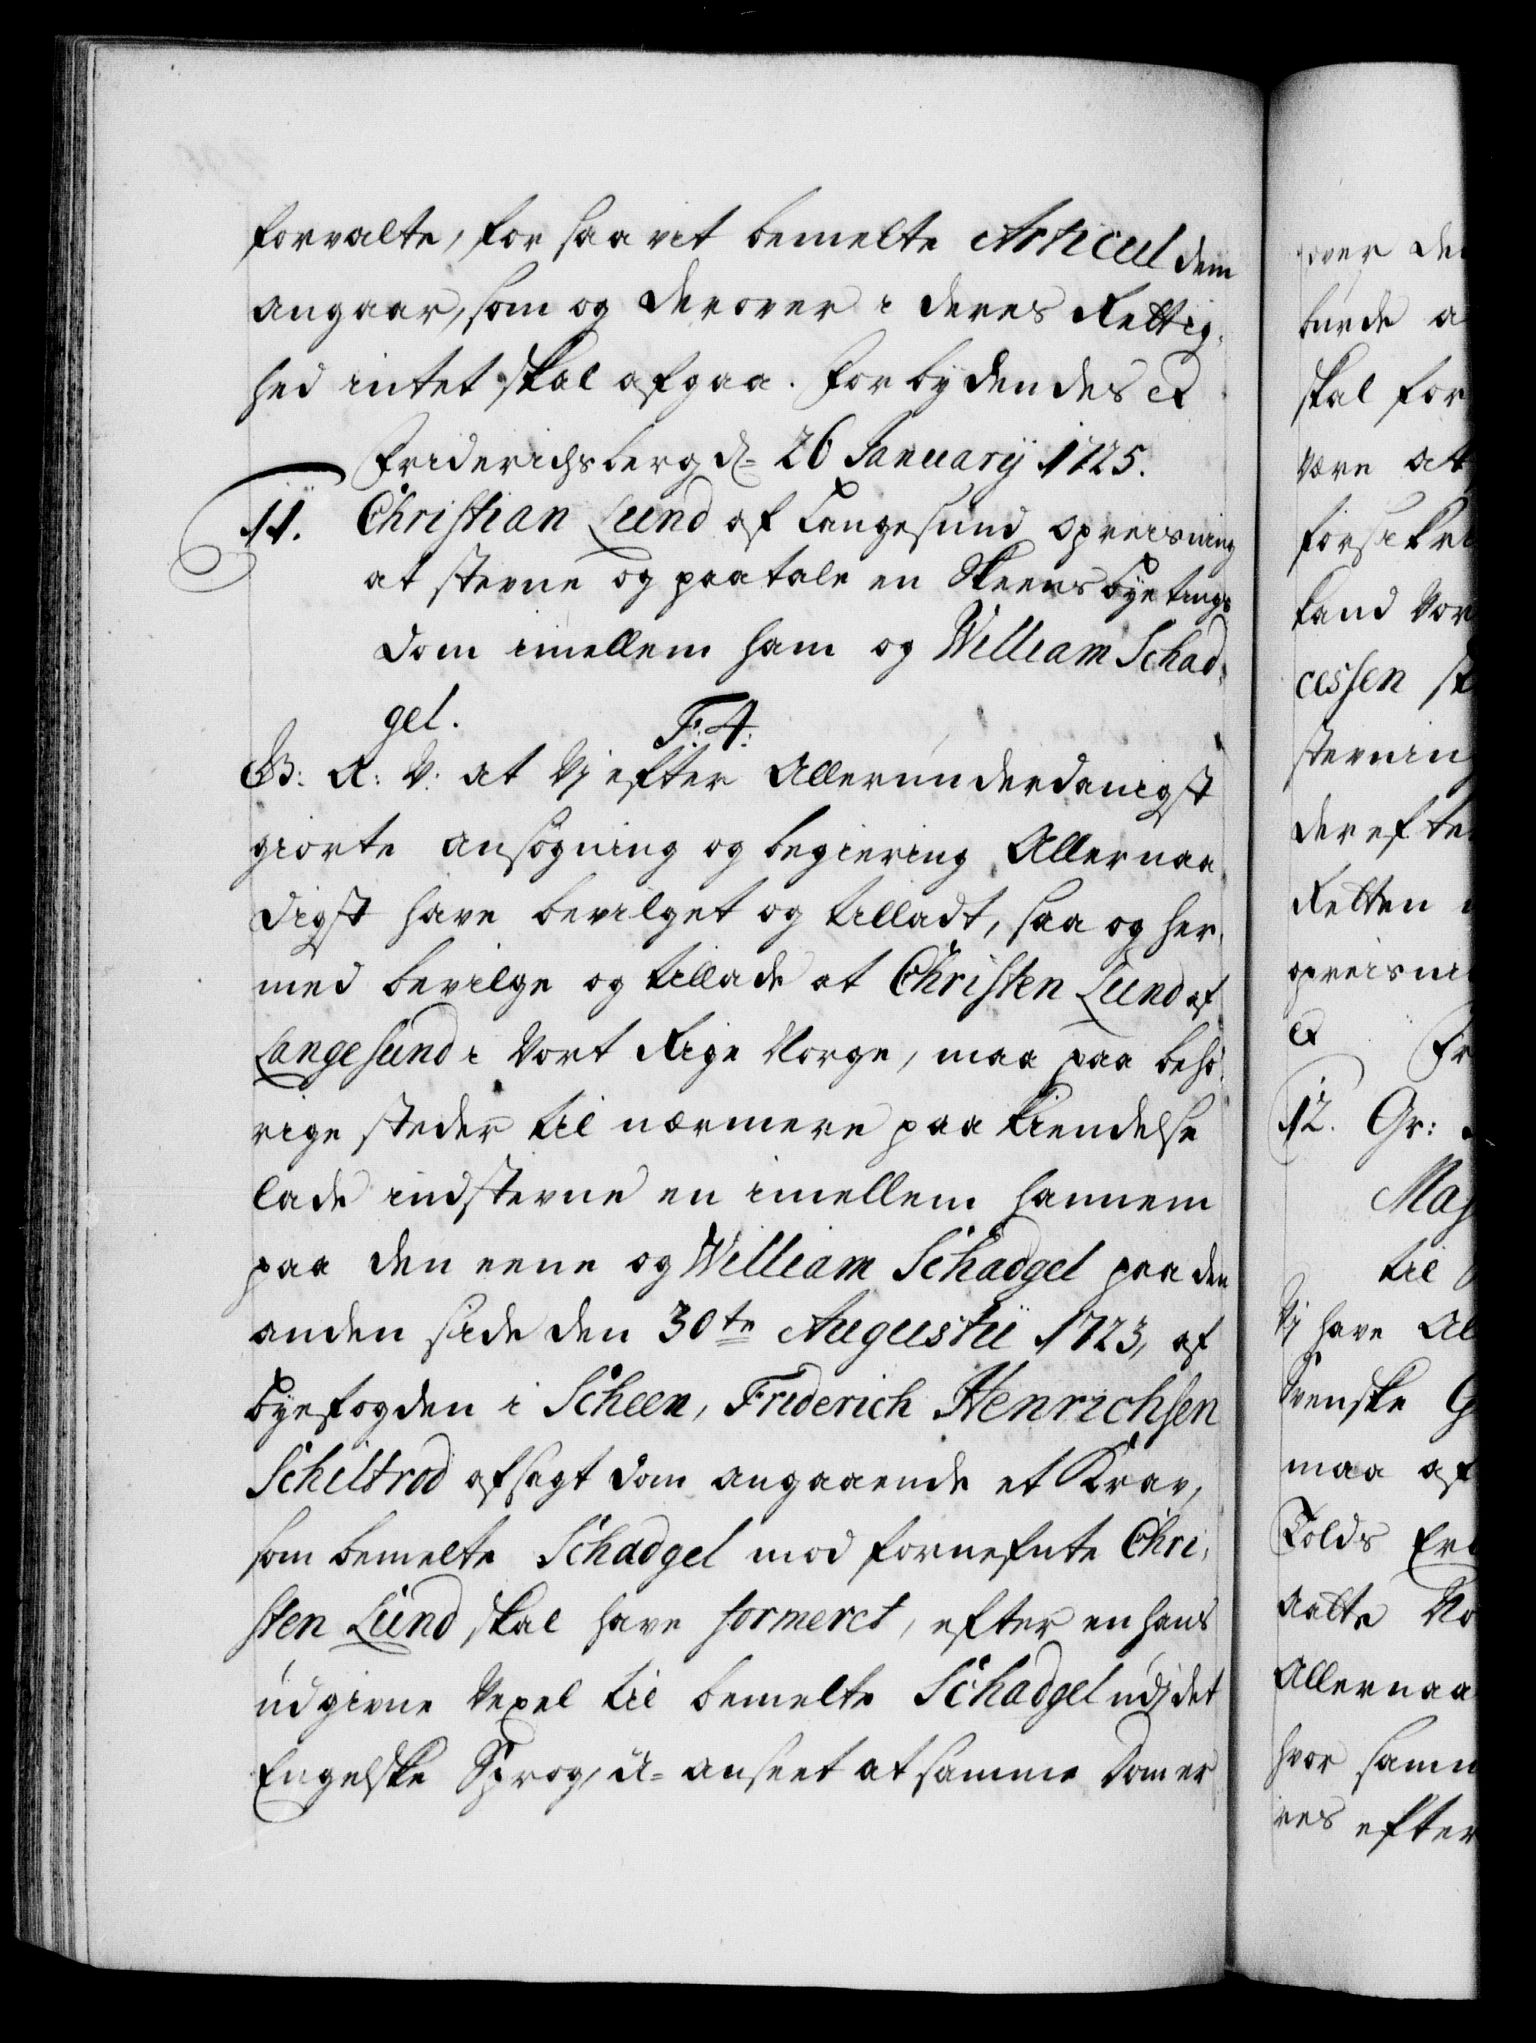 forvalte, for saa vit bemelte Articul dem
angaar, som og derover i deres Rettig-
hed intet skal afgaa. Forbydendes &
Friderichsberg d= 26 Januarij 1725.
11. Christian Lund af Langesund opreisning
at stevne og paatale en Skeens byetings
Dom imellem ham og William Schad-
gel. F: 4:
G: A: V: at Vj efter Allerunderdanigst
giorte ansøgning og begiering Allernaa-
digst have bevilget og tilladt, saa og her-
med bevilge og tillade at Christen Lund af
Langesund i Vort Rige Norge, maa paa behø-
rige steder til nærmere paa kiendelse
lade indstevne en imellem hannem
paa den eene og William Schadgel paa den
anden side den 30te Augustii 1723, af
byefogden i Scheen, Friderich Henrichsen
Schiltrod afsagt dom angaaende et Krav,
som bemelte Schadgel mod fornefnte Chri-
sten Lund skal have formeret, efter en hans
udgivne Vexel til bemelte Schadgel udj det
Engelske Sprog, u- anseet at samme Dom er
over de
burde a
skal for
være at
forsikr
kand Vor
cessen sk
stevnin
derefte
Retten
opreisni
& Fr
12. Gr:
Maj
til
Vj have Al
Svenske G
maa af
Tolds Er
aatte No
Allernaa
hvor samm
res efter